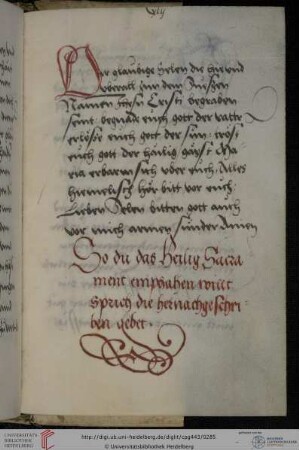 Ir glaubige Selen die hie vnd
uberall Inn dem Sussen
Namen Jhesu Cristi begraben
seint begnade euch gott der vatter
erlösse euch gott der sun tröst
euch gott der hailig gayst Ma
ria erbarm sich vber euch Alles
himelisch hör bitt vor euch
Lieben Selen bitten gott auch
vor mich armen sünder Amen
So du das Heilig Sacra
ment empfahen wilt
sprich die hernachgeschri
ben gebet.
UNIVERSITÄTS-
BIBLIOTHEK
HEIDELBERG
http://digi.ub.uni-heidelberg.de/diglit/cpg443/0285
© Universitätsbibliothek Heidelberg